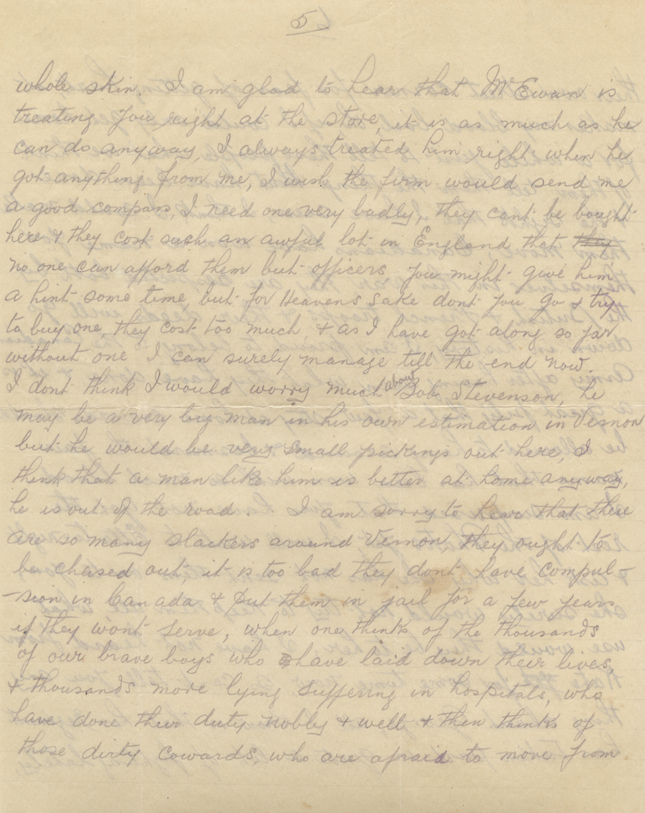 5
whole skin. I am glad to hear that McEwan is
treating you right at the store, it is as much as he
can do anyway, I always treated him right when he
got anything from me, I wish the firm would send me
a good compass, I need one very badly, they cant be bought
here & they cost such an awful lot in England that they
no one can afford them but officers you might give him
a hint some time, but for Heavens sake dont you go & try
to buy one, they cost too much & as I have got along so far
without one I can surely manage till the end now.
I dont think I would worry much about Bob Stevenson, he
may be a very big man in his own estimation in Vernon
but he would be very small pickings out here, I
think that a man like him is better at home anyway,
he is out of the road. I am sorry to hear that there
are so many slackers around Vernon they ought to
be chased out it is too bad they dont have compul-
-sion in Canada & put them in jail for a few years
if they wont serve, when one thinks of the thousands
of our brave boys who have laid down their lives,
& thousands more lying suffering in hospitals, who
have done their duty nobly & well & then thinks of
those dirty cowards, who are afraid to move from